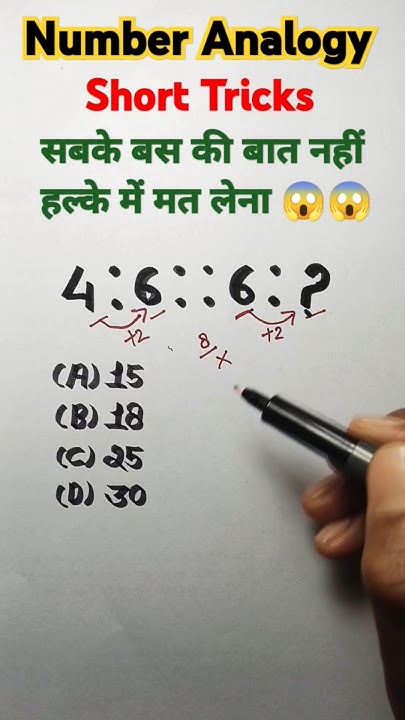 Number Analogy
Short Tricks
सबके बस की बात नहीं
हल्के में मत लेना 😱😱
4:6::6:?
+2 +2
8/x
(A) 15
(B) 18
(C) 25
(D) 30